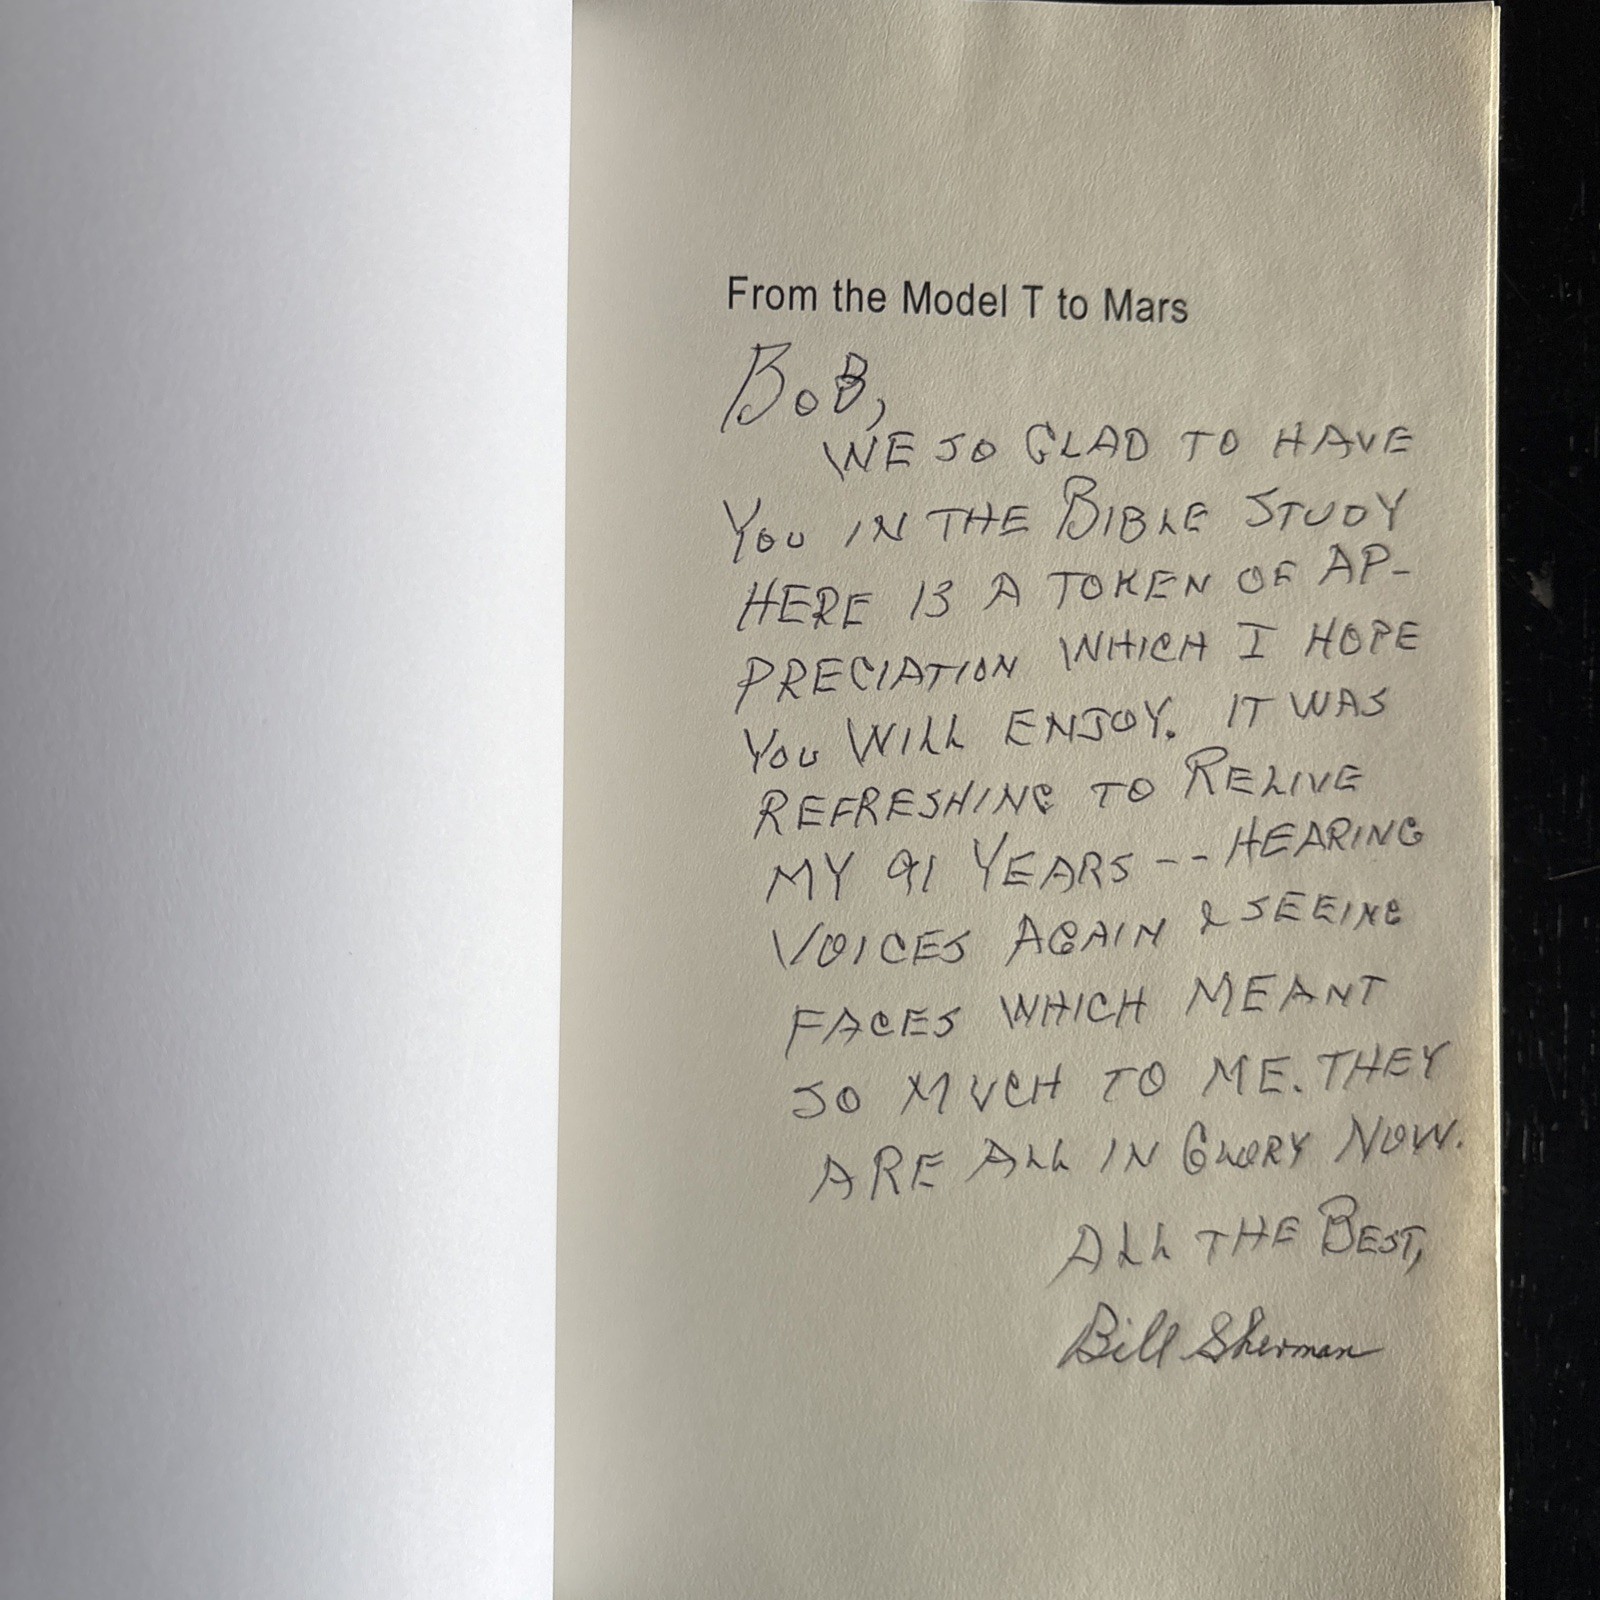 From the Model T to Mars
BOB,
WE SO GLAD TO HAVE
YOU IN THE BIBLE STUDY
HERE IS A TOKEN OF AP-
PRECIATION WHICH I HOPE
YOU WILL ENJOY. IT WAS
REFRESHING TO RELIVE
MY 91 YEARS -- HEARING
VOICES AGAIN & SEEING
FACES WHICH MEANT
SO MUCH TO ME. THEY
ARE ALL IN GLORY NOW.
ALL THE BEST,
Bill Sherman